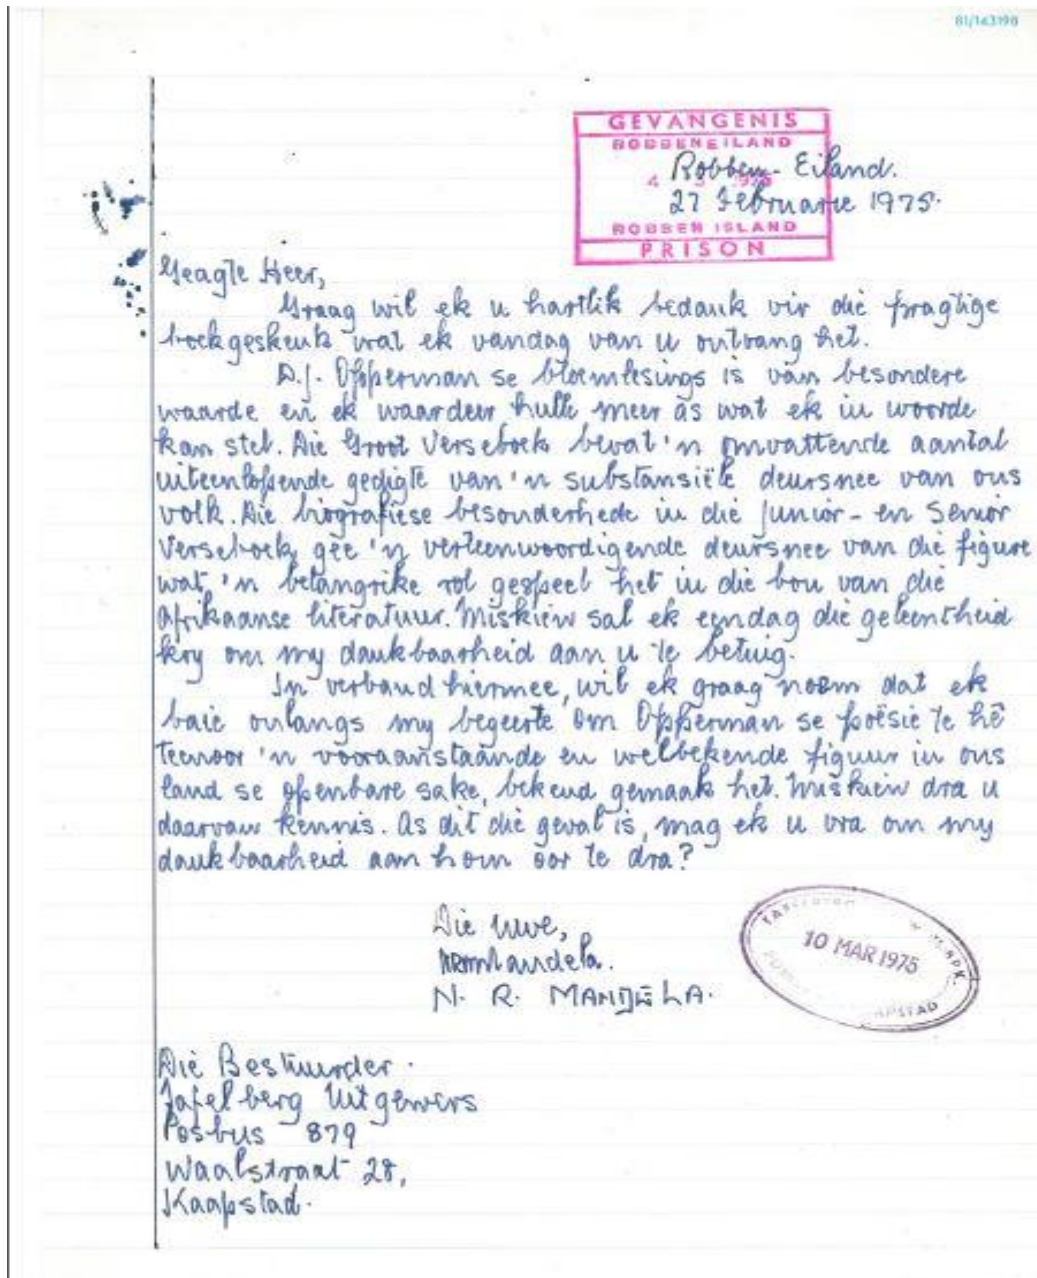 81/143198
GEVANGENIS
ROBBENEILAND
Robben-Eiland.
4 3 1975
27 Februarie 1975.
ROBBEN ISLAND
PRISON
Geagte Heer,
Graag wil ek u hartlik bedank vir die pragtige
boekgeskenk wat ek vandag van u ontvang het.
D.J. Opperman se bloemlesings is van besondere
waarde en ek waardeer hulle meer as wat ek in woorde
kan stel. Die Groot Verseboek bevat 'n omvattende aantal
uiteenlopende gedigte van 'n substansiële deursnee van ons
volk. Die biografiese besonderhede in die Junior- en Senior
Verseboek gee 'n verteenwoordigende deursnee van die figure
wat 'n belangrike rol gespeel het in die bou van die
Afrikaanse literatuur. Miskien sal ek eendag die geleentheid
kry om my dankbaarheid aan u te betuig.
In verband hiermee, wil ek graag noem dat ek
baie onlangs my begeerte om Opperman se poësie te hê
teenoor 'n vooraanstaande en welbekende figuur in ons
land se openbare sake, bekend gemaak het. Miskien dra u
daarvan kennis. As dit die geval is, mag ek u vra om my
dankbaarheid aan hom oor te dra?
Die uwe,
NRMandela.
N. R. MANDELA.
10 MAR 1975
Die Bestuurder.
Tafelberg Uitgewers
Posbus 879
Waalstraat 28,
Kaapstad.